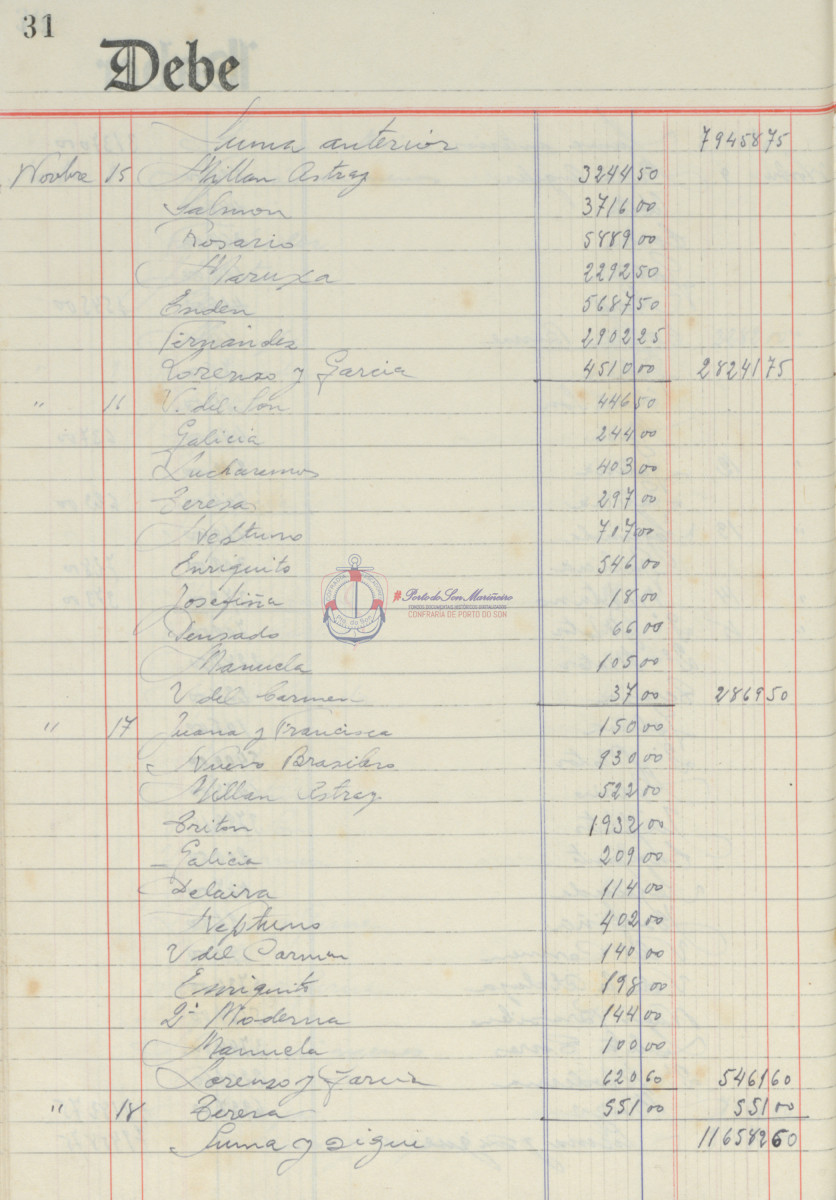 31
Debe
Suma anterior 79458 75
Novbre 15 Millan Astray 3244 50
Salmon 3716 00
Rosario 5889 00
Maruxa 2292 50
Enden 5687 50
Fernandez 2902 25
Lorenzo y Garcia 4510 00 28241 75
" 16 V. del Son 446 50
Galicia 244 00
Lucharemos 403 00
Teresa 297 00
Neptuno 707 00
Enriquito 546 00
Josefiña 18 00
Pensado 66 00
Manuela 105 00
V del Carmen 37 00 2869 50
" 17 Juana y Francisca 150 00
Nuevo Brasilero 930 00
Millan Astray 522 00
Triton 1932 00
Galicia 209 00
Delaira 114 00
Neptuno 402 00
V del Carmen 140 00
Enriquito 198 00
2ª Moderna 144 00
Manuela 100 00
Lorenzo y Garcia 620 60 5461 60
" 18 Teresa 551 00 551 00
Suma y sigue 116582 60
#Porto do Son Mariñeiro
CONFRARIA DE PORTO DO SON